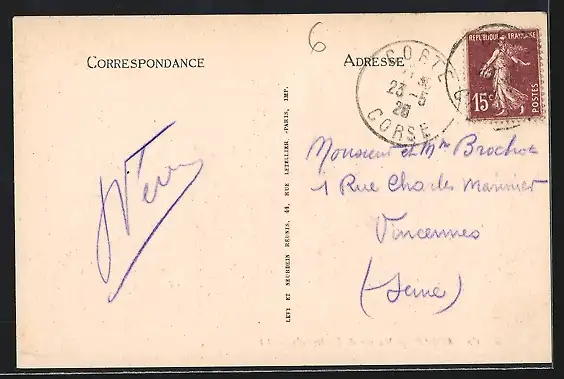 6
CORRESPONDANCE
ADRESSE
CORTE
23-5
26
CORSE
REPUBLIQUE FRANÇAISE
15c
POSTES
Monsieur et Mme Brochot
1 Rue Charles Marinier
Vincennes
(Seine)
LEVY ET NEURDEIN RÉUNIS, 44, RUE LETELLIER, -PARIS, IMP.